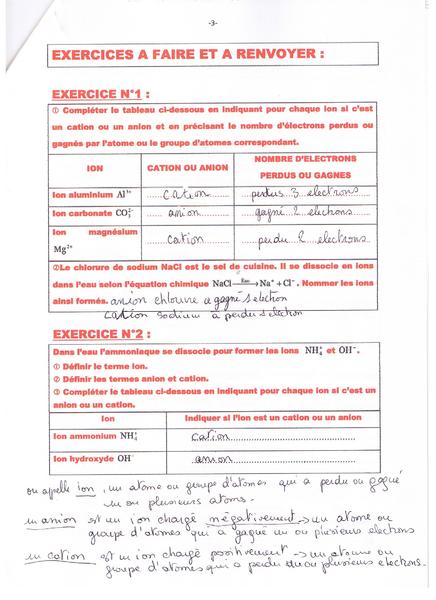 -3-
EXERCICES A FAIRE ET A RENVOYER :
EXERCICE N°1 :
① Compléter le tableau ci-dessous en indiquant pour chaque ion si c'est
un cation ou un anion et en précisant le nombre d'électrons perdus ou
gagnés par l'atome ou le groupe d'atomes correspondant.
ION CATION OU ANION NOMBRE D'ELECTRONS PERDUS OU GAGNES
Ion aluminium Al³⁺ cation perdus 3 electrons
Ion carbonate CO₃²⁻ anion gagné 2 electrons
Ion magnésium Mg²⁺ cation perdu 2 electrons
②Le chlorure de sodium NaCl est le sel de cuisine. Il se dissocie en ions
dans l'eau selon l'équation chimique NaCl —Eau→ Na⁺ + Cl⁻. Nommer les ions
ainsi formés. anion chlorure a gagné electron
cation sodium a perdu electron
EXERCICE N°2 :
Dans l'eau l'ammoniaque se dissocie pour former les ions NH₄⁺ et OH⁻.
① Définir le terme ion.
② Définir les termes anion et cation.
③ Compléter le tableau ci-dessous en indiquant pour chaque ion si c'est un
anion ou un cation.
Ion Indiquer si l'ion est un cation ou un anion
Ion ammonium NH₄⁺ cation
Ion hydroxyde OH⁻ anion
on appelle ion, un atome ou groupe d'atomes qui a perdu ou gagné
un ou plusieurs atoms.
un anion est un ion chargé négativement → un atome ou
groupe d'atomes qui a gagné un ou plusieurs electrons
un cation est un ion chargé positivement → un atome ou
groupe d'atomes qui a perdu un ou plusieurs electrons.